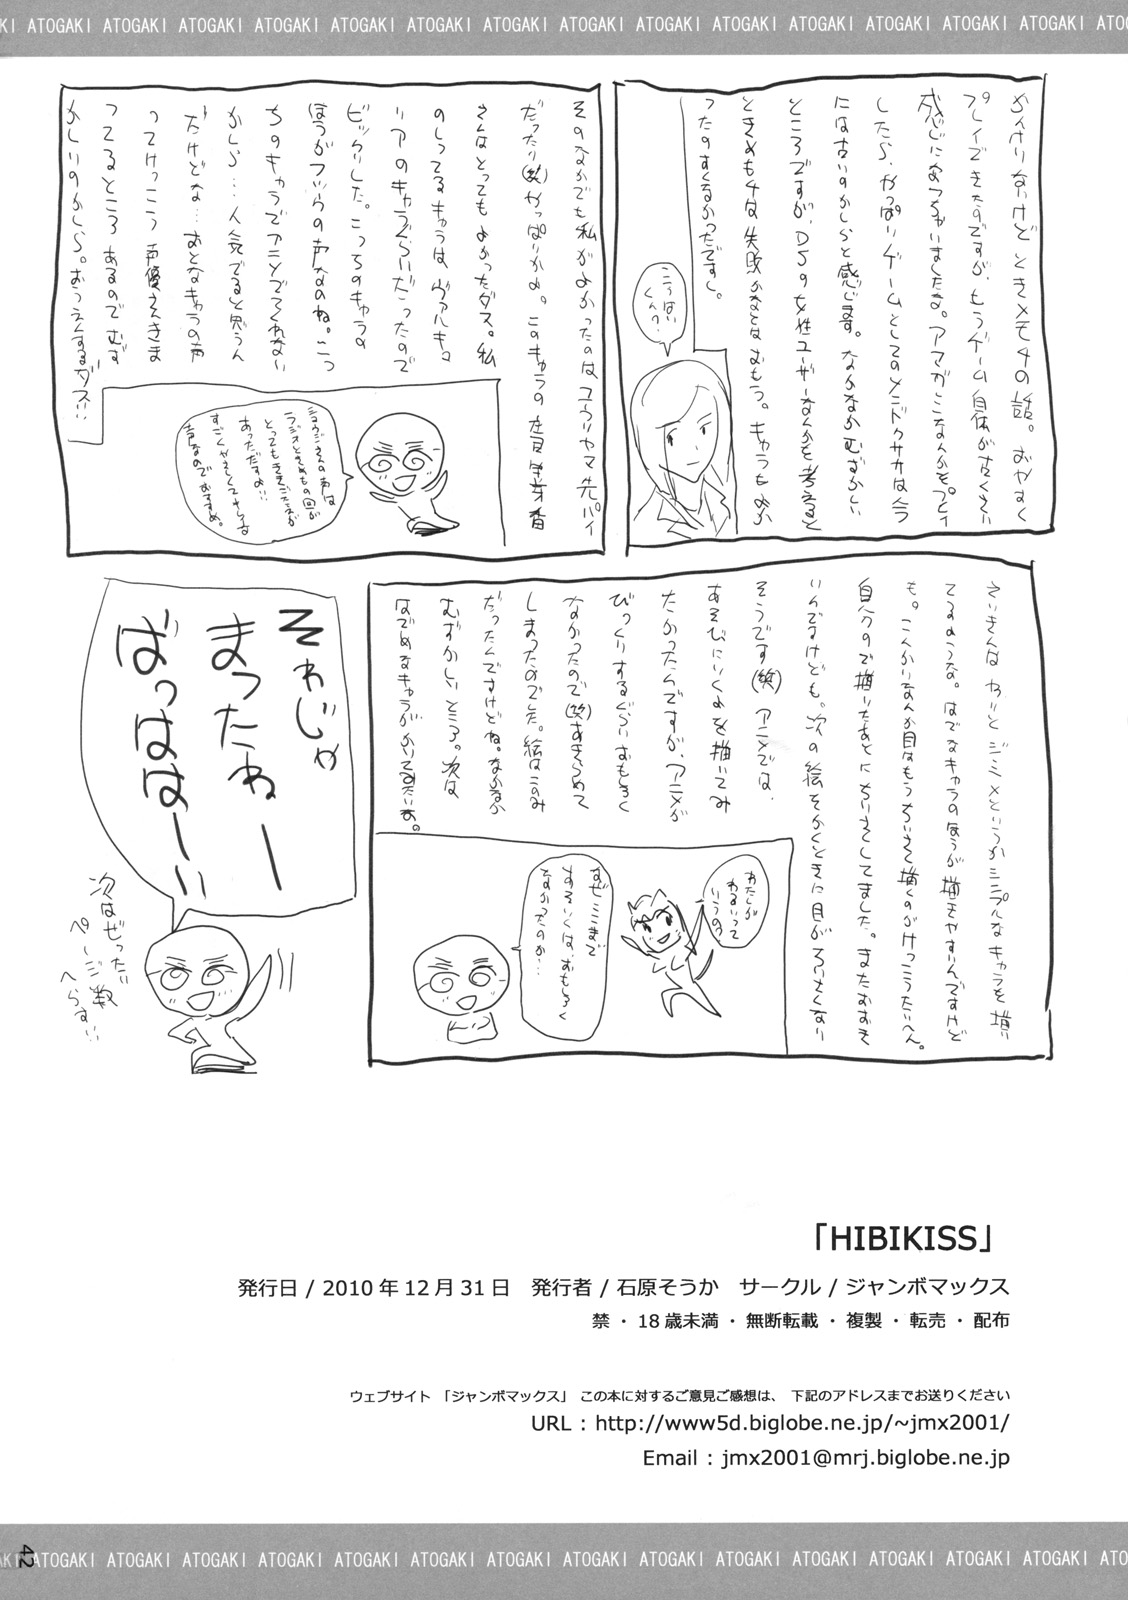 ATOGAKI ATOGAKI ATOGAKI ATOGAKI ATOGAKI ATOGAKI ATOGAKI ATOGAKI ATOGAKI ATOGAKI ATOGAKI ATOGAKI ATOGAKI ATOGAKI
かんけりないけど ときメモ4の話。おやまく
プレイできたのですが、もうゲーム自体が古くさい
感じにあっちゃいましたな。アマガミなんかをプレイ
したら、やっぱりゲームとしてのメンドクササは今
には古いのかしらと感じます。なかなかむずかしい
ところですが、DSの女性ユーザーなんかを考えると
ときメモ4は失敗かなとはおもう。キャラもよか
ったのすくなかったですし。
こうはい
くん?
そのなかでも私がよかったのはユウリヤマ先パイ
だったり(笑)やっぱりかよ。このキャラの
さんはとってもよかったダス。私
のしってるキャラは ヴァルキュ
リアのキャラぐらいだったので
ビックリした。こっちのキャラの
ほうがフツウの声なのね。こっ
ちのキャラでアニメでてくれない
かしら…人気でると思うん
だけどな…おとなキャラの声
ってけっこう 声優さんきま
ってるところ あるので むず
かしいのかしら。おうえんするダス!!
ショウジさんの声は
ラジオときめもの回が
とってもききごたえが
あっただすよ!!
すごくやさしくてキレイな
声なのでおすすめ。
さいきんは わりと ジミメというかシンプルなキャラを描い
てるような。はでなキャラのほうが描きやすいんですけど
も。こんかいなんか目はもうちいさく描くのがけっこうたいへん。
自分ので描いたあとにちいさくしてました。またおおき
いんですけども。次の絵をかくときに目がちいさくなり
そうです(笑)アニメでは、
あそびにいくよを描いてみ
たかったんですが、アニメが
びっくりするぐらいおもしろく
なかったので(笑)あきらめて
しまったのでした。絵はこのみ
だったんですけどね。なかなか
むずかしいところ。次は
はでめなキャラがかいてみたいな。
わたしが
わるいって
いうの?
なぜここまで
おもしろく
なかったのか…
それじゃ
まったねー
ばっははーい
次はぜったい
ページ数
へらす!!
「HIBIKISS」
発行日 / 2010 年 12 月 31 日 発行者 / 石原そうか サークル / ジャンボマックス
禁 ・ 18 歳未満 ・ 無断転載 ・ 複製 ・ 転売 ・ 配布
ウェブサイト 「ジャンボマックス」 この本に対するご意見ご感想は、 下記のアドレスまでお送りください
URL : http://www5d.biglobe.ne.jp/~jmx2001/
Email : jmx2001@mrj.biglobe.ne.jp
42
ATOGAKI ATOGAKI ATOGAKI ATOGAKI ATOGAKI ATOGAKI ATOGAKI ATOGAKI ATOGAKI ATOGAKI ATOGAKI ATOGAKI ATOGAKI ATOGAKI